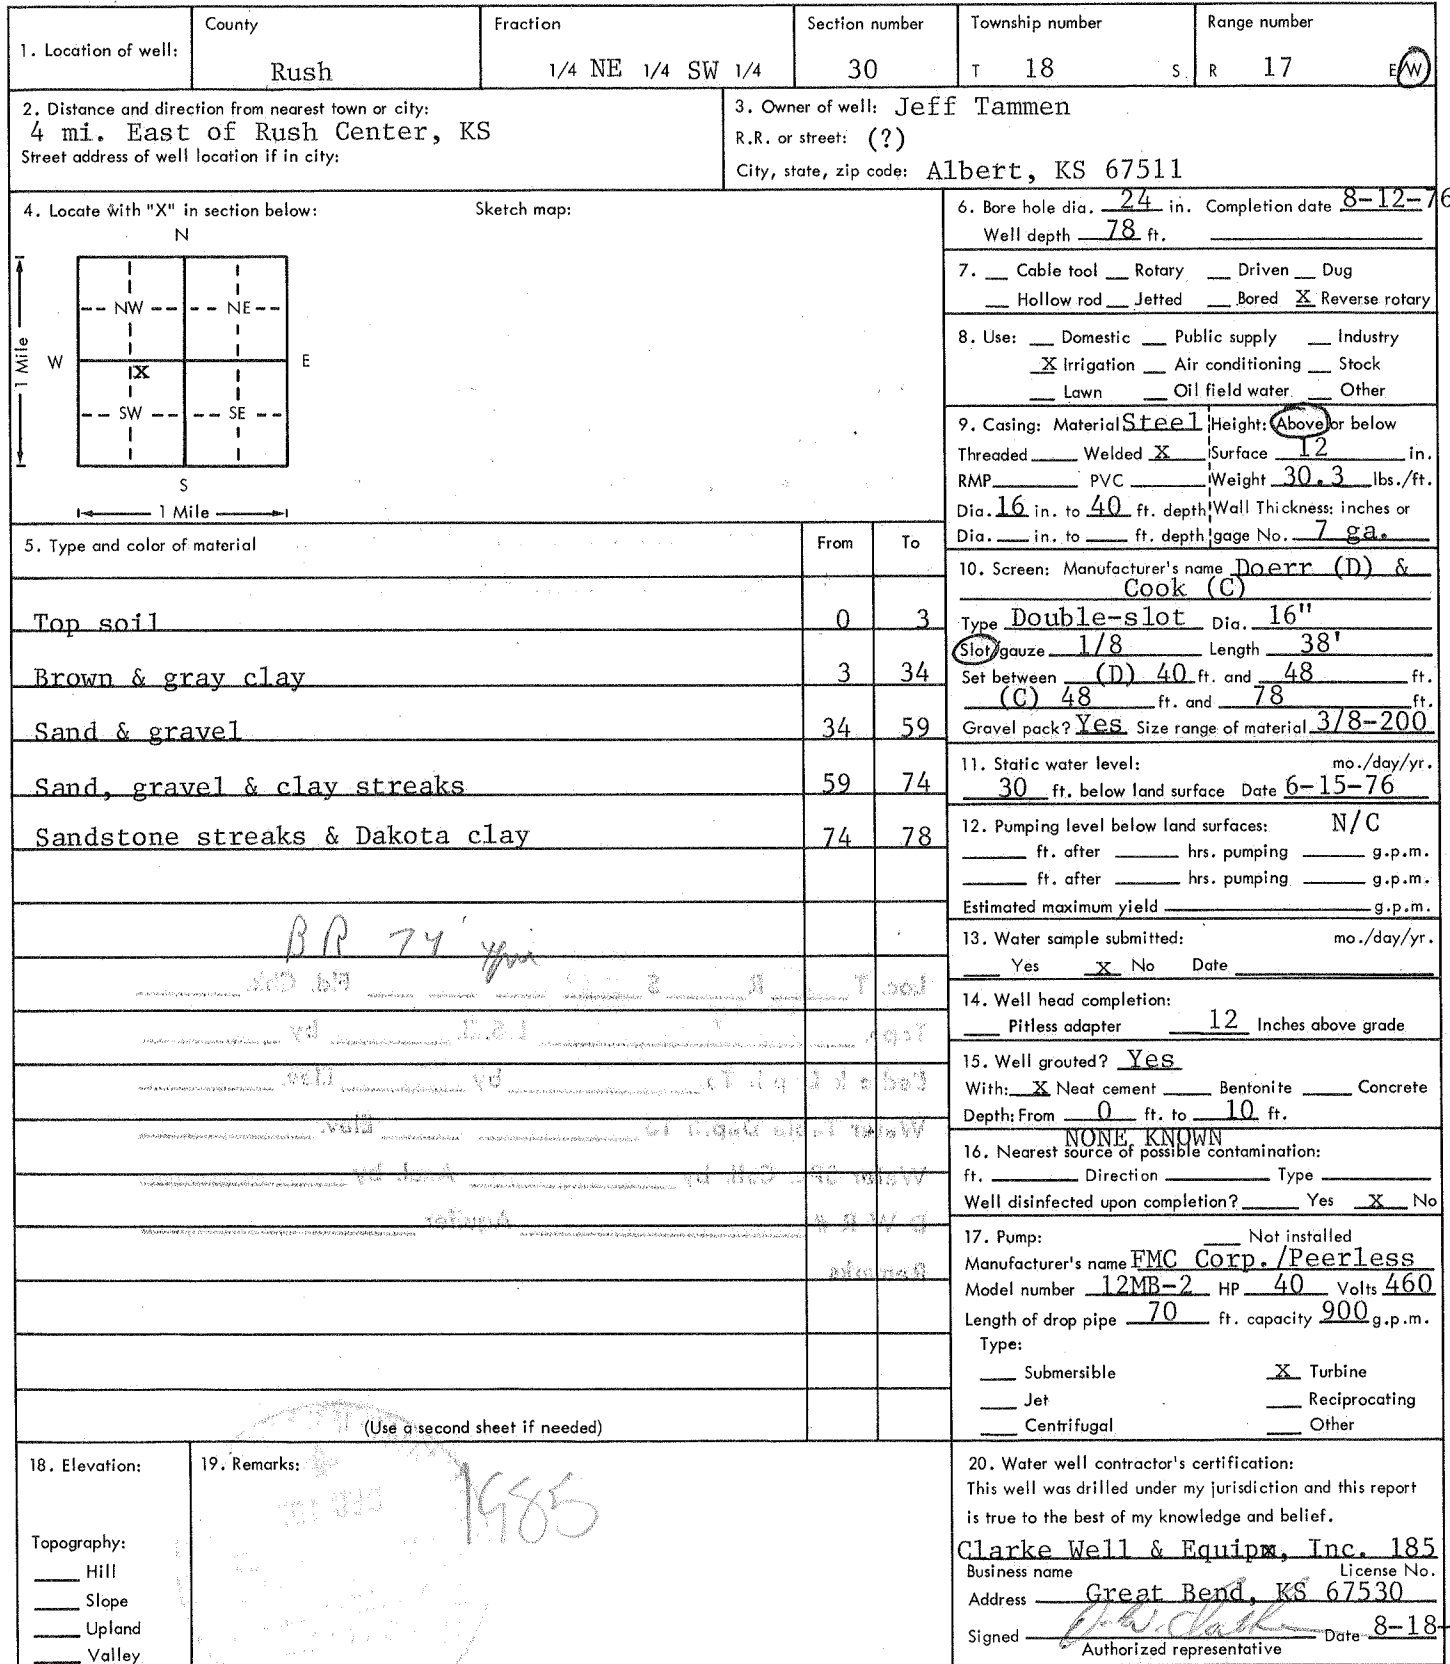 1. Location of well:
County
Rush
Fraction
1/4 NE 1/4 SW 1/4
Section number
30
Township number
T 18 S
Range number
R 17 E/W
2. Distance and direction from nearest town or city:
4 mi. East of Rush Center, KS
Street address of well location if in city:
3. Owner of well: Jeff Tammen
R.R. or street: (?)
City, state, zip code: Albert, KS 67511
4. Locate with "X" in section below:
Sketch map:
N
NW NE
W E
X
SW SE
S
1 Mile
1 Mile
5. Type and color of material From To
Top soil 0 3
Brown & gray clay 3 34
Sand & gravel 34 59
Sand, gravel & clay streaks 59 74
Sandstone streaks & Dakota clay 74 78
BR 74'
Loc. T R S Fld. Chk.
Topo. L.S.D. by
by Elev.
Water Table Depth To Elev.
Water SPC. Coll. by Anal. by
D W R # Aquifer
Remarks
(Use a second sheet if needed)
6. Bore hole dia. 24 in. Completion date 8-12-76
Well depth 78 ft.
7. Cable tool Rotary Driven Dug
Hollow rod Jetted Bored X Reverse rotary
8. Use: Domestic Public supply Industry
X Irrigation Air conditioning Stock
Lawn Oil field water Other
9. Casing: Material Steel Height: Above or below
Threaded Welded X Surface 12 in.
RMP PVC Weight 30.3 lbs./ft.
Dia. 16 in. to 40 ft. depth Wall Thickness: inches or
Dia. in. to ft. depth gage No. 7 ga.
10. Screen: Manufacturer's name Doerr (D) &
Cook (C)
Type Double-slot Dia. 16"
Slot/gauze 1/8 Length 38'
Set between (D) 40 ft. and 48 ft.
(C) 48 ft. and 78 ft.
Gravel pack? Yes Size range of material 3/8-200
11. Static water level: mo./day/yr.
30 ft. below land surface Date 6-15-76
12. Pumping level below land surfaces: N/C
ft. after hrs. pumping g.p.m.
ft. after hrs. pumping g.p.m.
Estimated maximum yield g.p.m.
13. Water sample submitted: mo./day/yr.
Yes X No Date
14. Well head completion:
Pitless adapter 12 Inches above grade
15. Well grouted? Yes
With: X Neat cement Bentonite Concrete
Depth: From 0 ft. to 10 ft.
NONE KNOWN
16. Nearest source of possible contamination:
ft. Direction Type
Well disinfected upon completion? Yes X No
17. Pump: Not installed
Manufacturer's name FMC Corp./Peerless
Model number 12MB-2 HP 40 Volts 460
Length of drop pipe 70 ft. capacity 900 g.p.m.
Type:
Submersible X Turbine
Jet Reciprocating
Centrifugal Other
18. Elevation:
Topography:
Hill
Slope
Upland
Valley
19. Remarks:
1985
20. Water well contractor's certification:
This well was drilled under my jurisdiction and this report
is true to the best of my knowledge and belief.
Clarke Well & Equipm, Inc. 185
Business name License No.
Address Great Bend, KS 67530
Signed Date 8-18-
Authorized representative